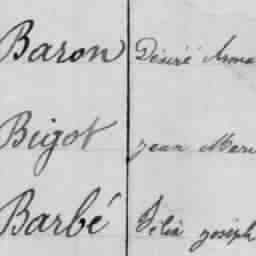 Baron Désiré Arma
Bigot Jean Mari
Barbé Félix joseph